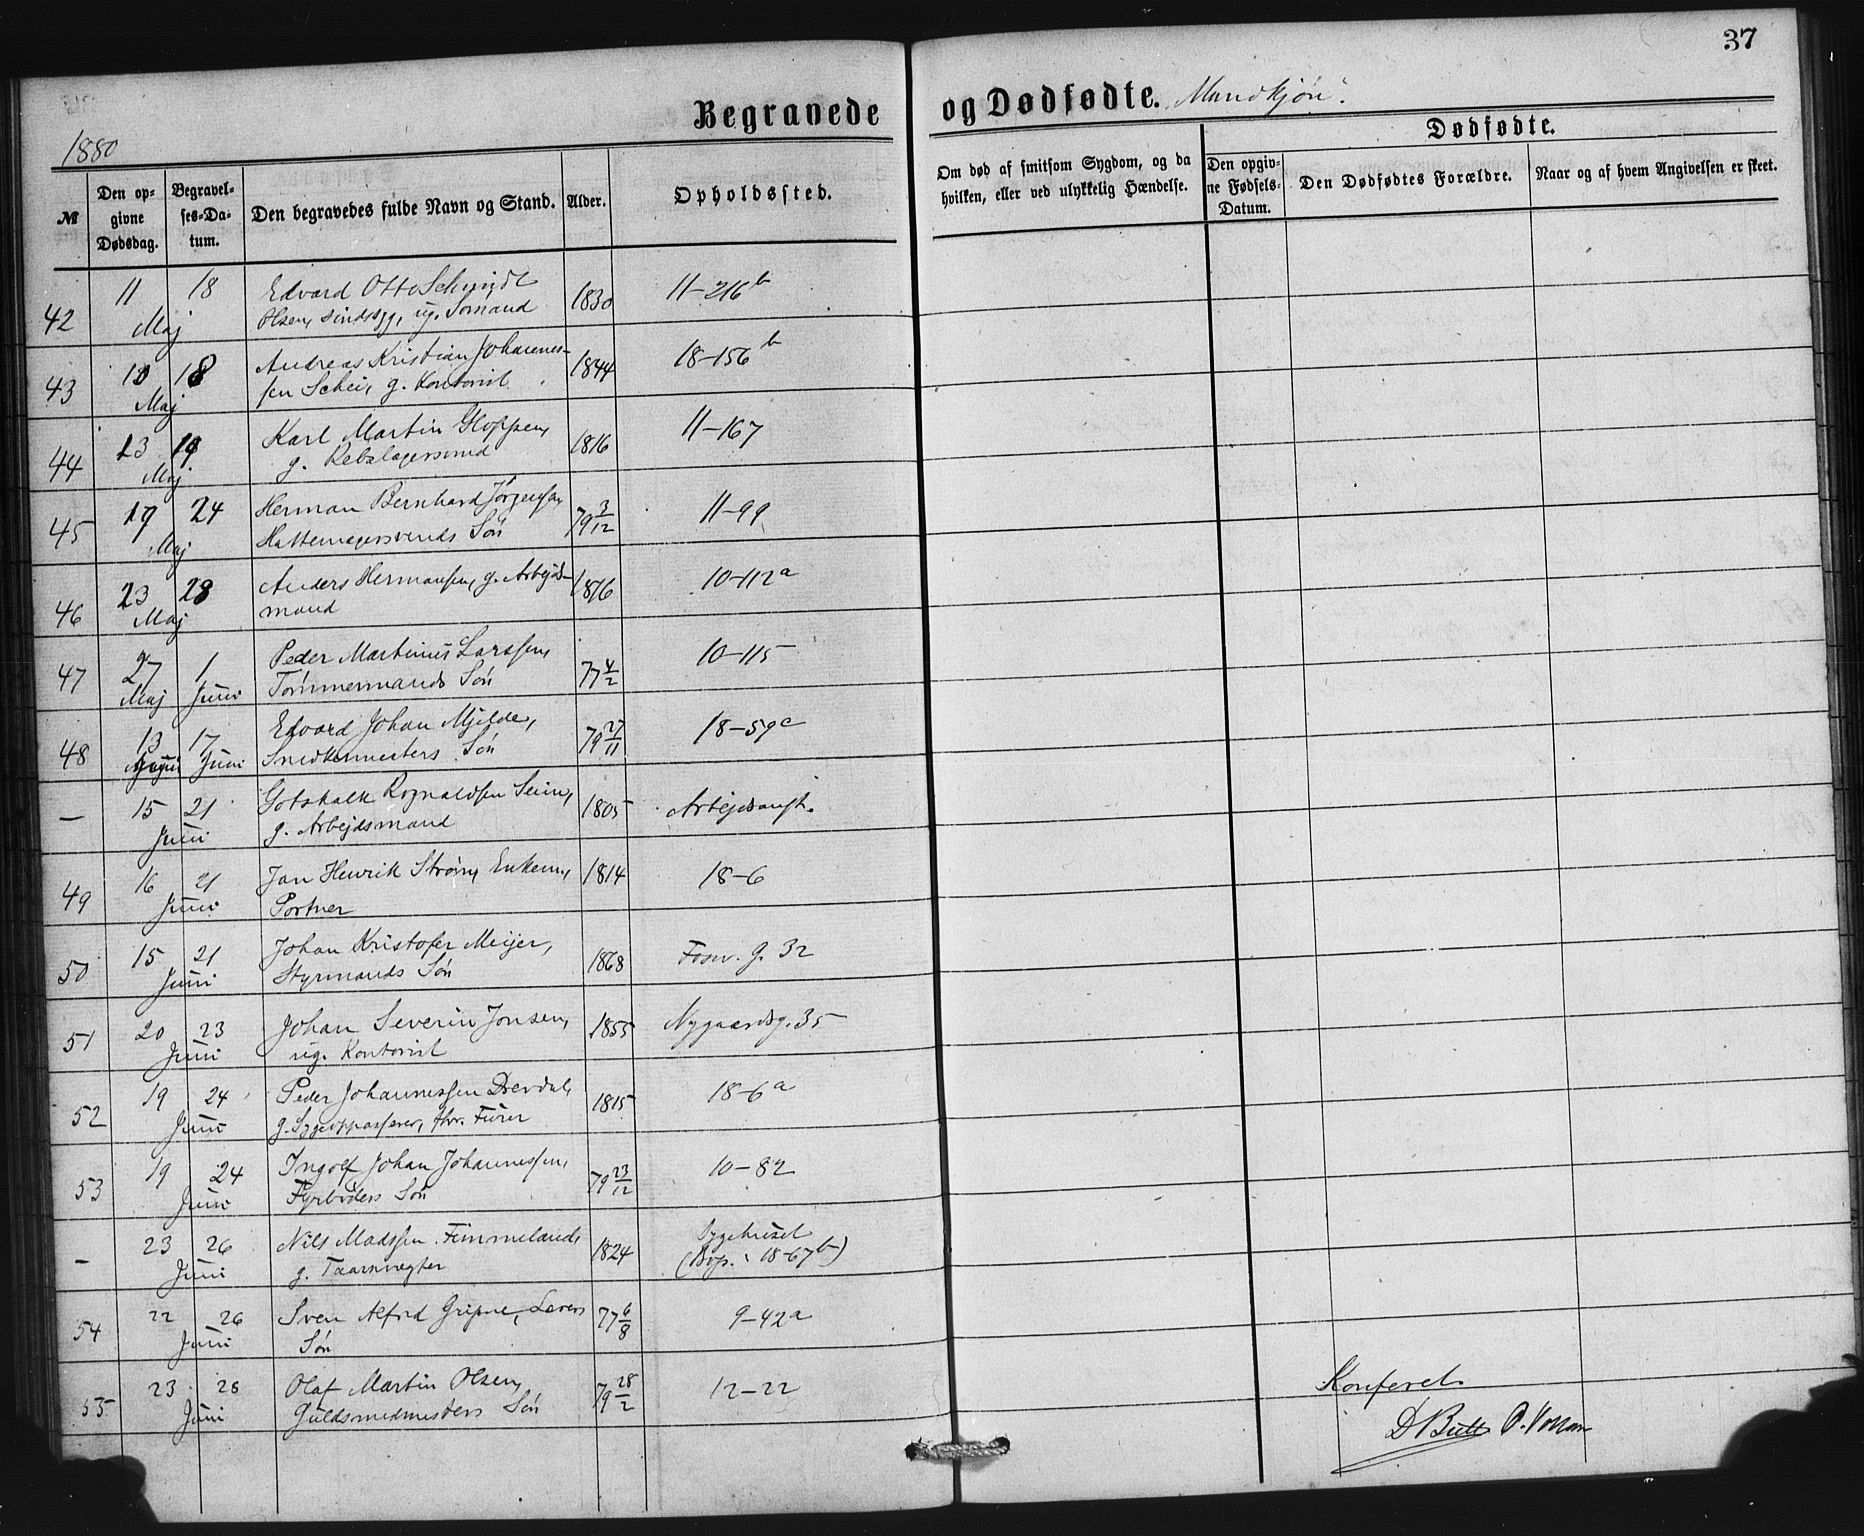 37
Begravede og Dødfødte. Mandkjøn.
1880
№
Den opgivne Dødsdag.
Begravelses-Datum.
Den begravedes fulde Navn og Stand.
Alder.
Opholdssted.
Om død af smitsom Sygdom, og da hvilken, eller ved ulykkelig Hændelse.
Dødfødte.
Den opgivne Fødsels-Datum.
Den Dødfødtes Forældre.
Naar og af hvem Angivelsen er skeet.
42 11 18 Edvard Otto Schmidt 1830 11-216b
Maj Olsen, sindssyg, ug. Sømand
43 10 18 Andreas Kristian Johannes- 1844 18-156b
Maj sen Schei, g. Kontorist
44 13 19 Karl Martin Gloppen, 1816 11-167
Maj g. Rebslagersvend
45 19 24 Herman Bernhard Jørgensen, 79 3/12 11-99
Maj Hattemagersvends Søn
46 23 28 Anders Hermansen, g. Arbejds- 1816 10-112a
Maj mand
47 27 1 Peder Martinus Larssen, 77 4/2 10-115
Maj Juni Tømmermands Søn
48 13 17 Edvard Johan Mjelde, 79 27/11 18-59c
Juni Juni Snedkermesters Søn
— 15 21 Gotskalk Rognaldsen Seim, 1805 Arbejdsanst.
Juni g. Arbejdsmand
49 16 21 Jan Henrik Strøm, Enkem., 1814 18-6
Juni Portner
50 15 21 Johan Kristofer Meijer, 1868 Fosw. g. 32
Juni Styrmands Søn
51 20 23 Johan Severin Jonsen, 1855 Nygaardsg. 35
Juni ug. Kontorist
52 19 24 Peder Johannessen Drevdal, 1815 18-6a
Juni g. Sygeopasser, fhv. Furer
53 19 24 Ingolf Johan Johannessen, 79 23/12 10-82
Juni Fyrbøders Søn
— 23 26 Nils Madssen Fimmeland, 1824 Sygehuset
Juni g. Taarnvægter (Bop.: 18-67b)
54 22 26 Sven Alfred Gripne, 77 6/8 9-42a
Juni Søn
55 23 28 Olaf Martin Olsen, 79 28/2 12-22
Juni Guldsmedmesters Søn
Konferet
D Bull